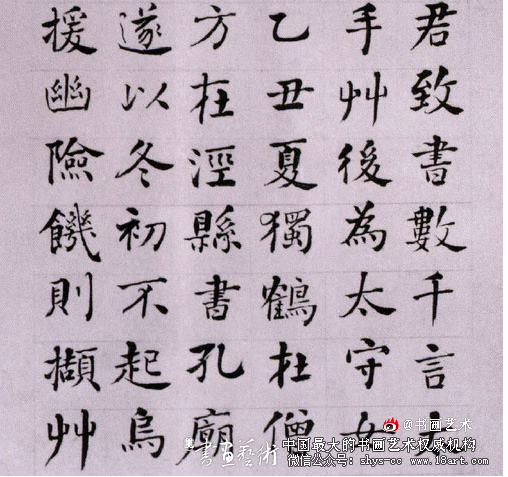 君致書數千言
手艸後為太守
乙丑夏獨鶴杜僧
方在涇縣書孔廟
遂以冬初不起烏
援幽險饑則擷艸
@书画艺术
書畫藝術
中国最大的书画艺术权威机构
微信公众号: shys-cc www.18art.com